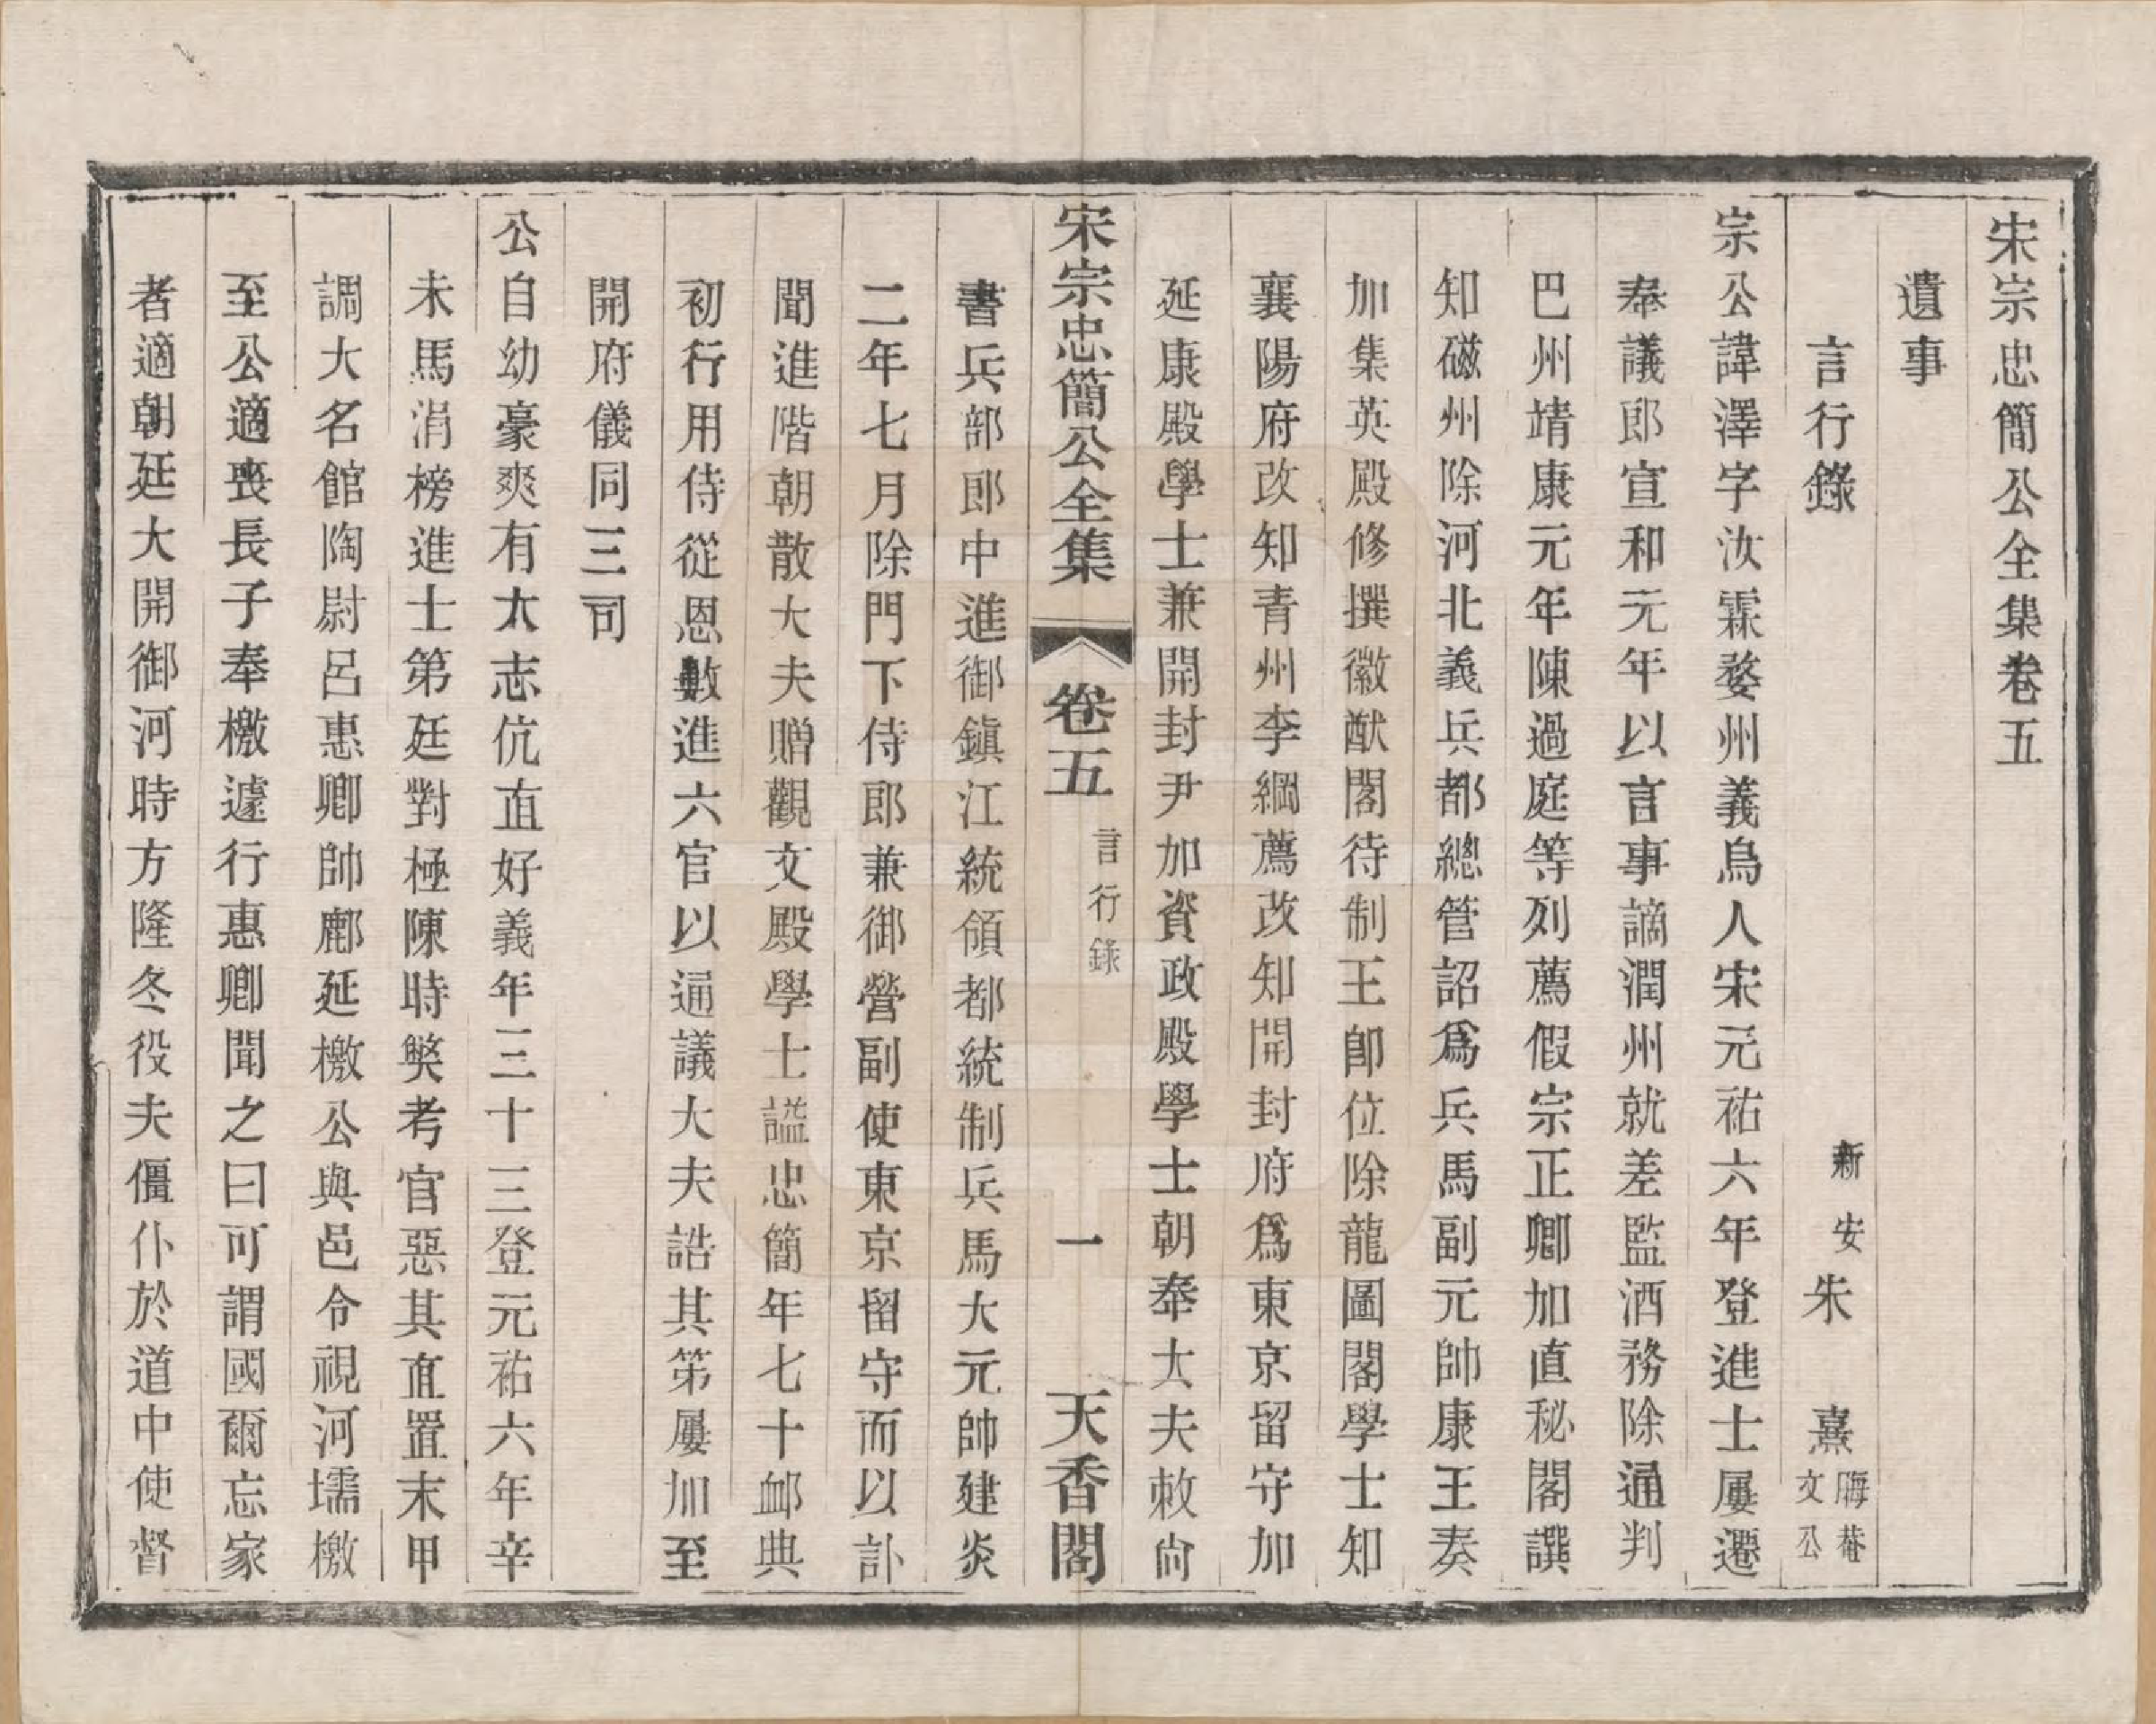 宋宗忠簡公全集卷五
遺事
言行錄　新安朱熹晦菴文公
宗公諱澤字汝霖婺州義烏人宋元祐六年登進士屢遷
奉議郎宣和元年以言事謫潤州就差監酒務除通判
巴州靖康元年陳過庭等列薦假宗正卿加直秘閣譔
知磁州除河北義兵都總管詔爲兵馬副元帥康王奏
加集英殿修撰徽猷閣待制王卽位除龍圖閣學士知
襄陽府改知青州李綱薦改知開封府爲東京留守加
延康殿學士兼開封尹加資政殿學士朝奉大夫敕尙
宋宗忠簡公全集　卷五　言行錄　一　天香閣
書兵部郎中進御鎭江統領都統制兵馬大元帥建炎
二年七月除門下侍郎兼御營副使東京留守而以訃
聞進階朝散大夫贈觀文殿學士謚忠簡年七十卹典
初行用侍從恩數進六官以通議大夫誥其第屢加至
開府儀同三司
公自幼豪爽有大志伉直好義年三十三登元祐六年辛
未馬涓榜進士第廷對極陳時獘考官惡其直置末甲
調大名館陶尉呂惠卿帥鄜延檄公與邑令視河壖檄
至公適喪長子奉檄遽行惠卿聞之曰可謂國爾忘家
者適朝廷大開御河時方隆冬役夫僵仆於道中使督